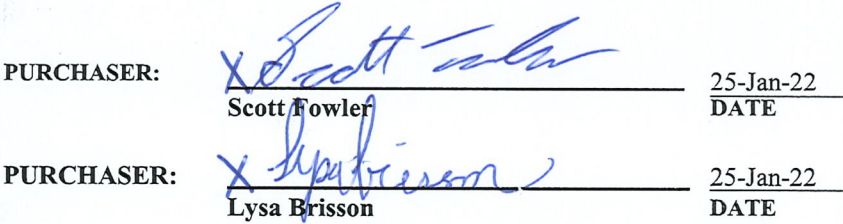 PURCHASER: X Scott Fowler 25-Jan-22
Scott Fowler DATE
PURCHASER: X Lysa Brisson 25-Jan-22
Lysa Brisson DATE